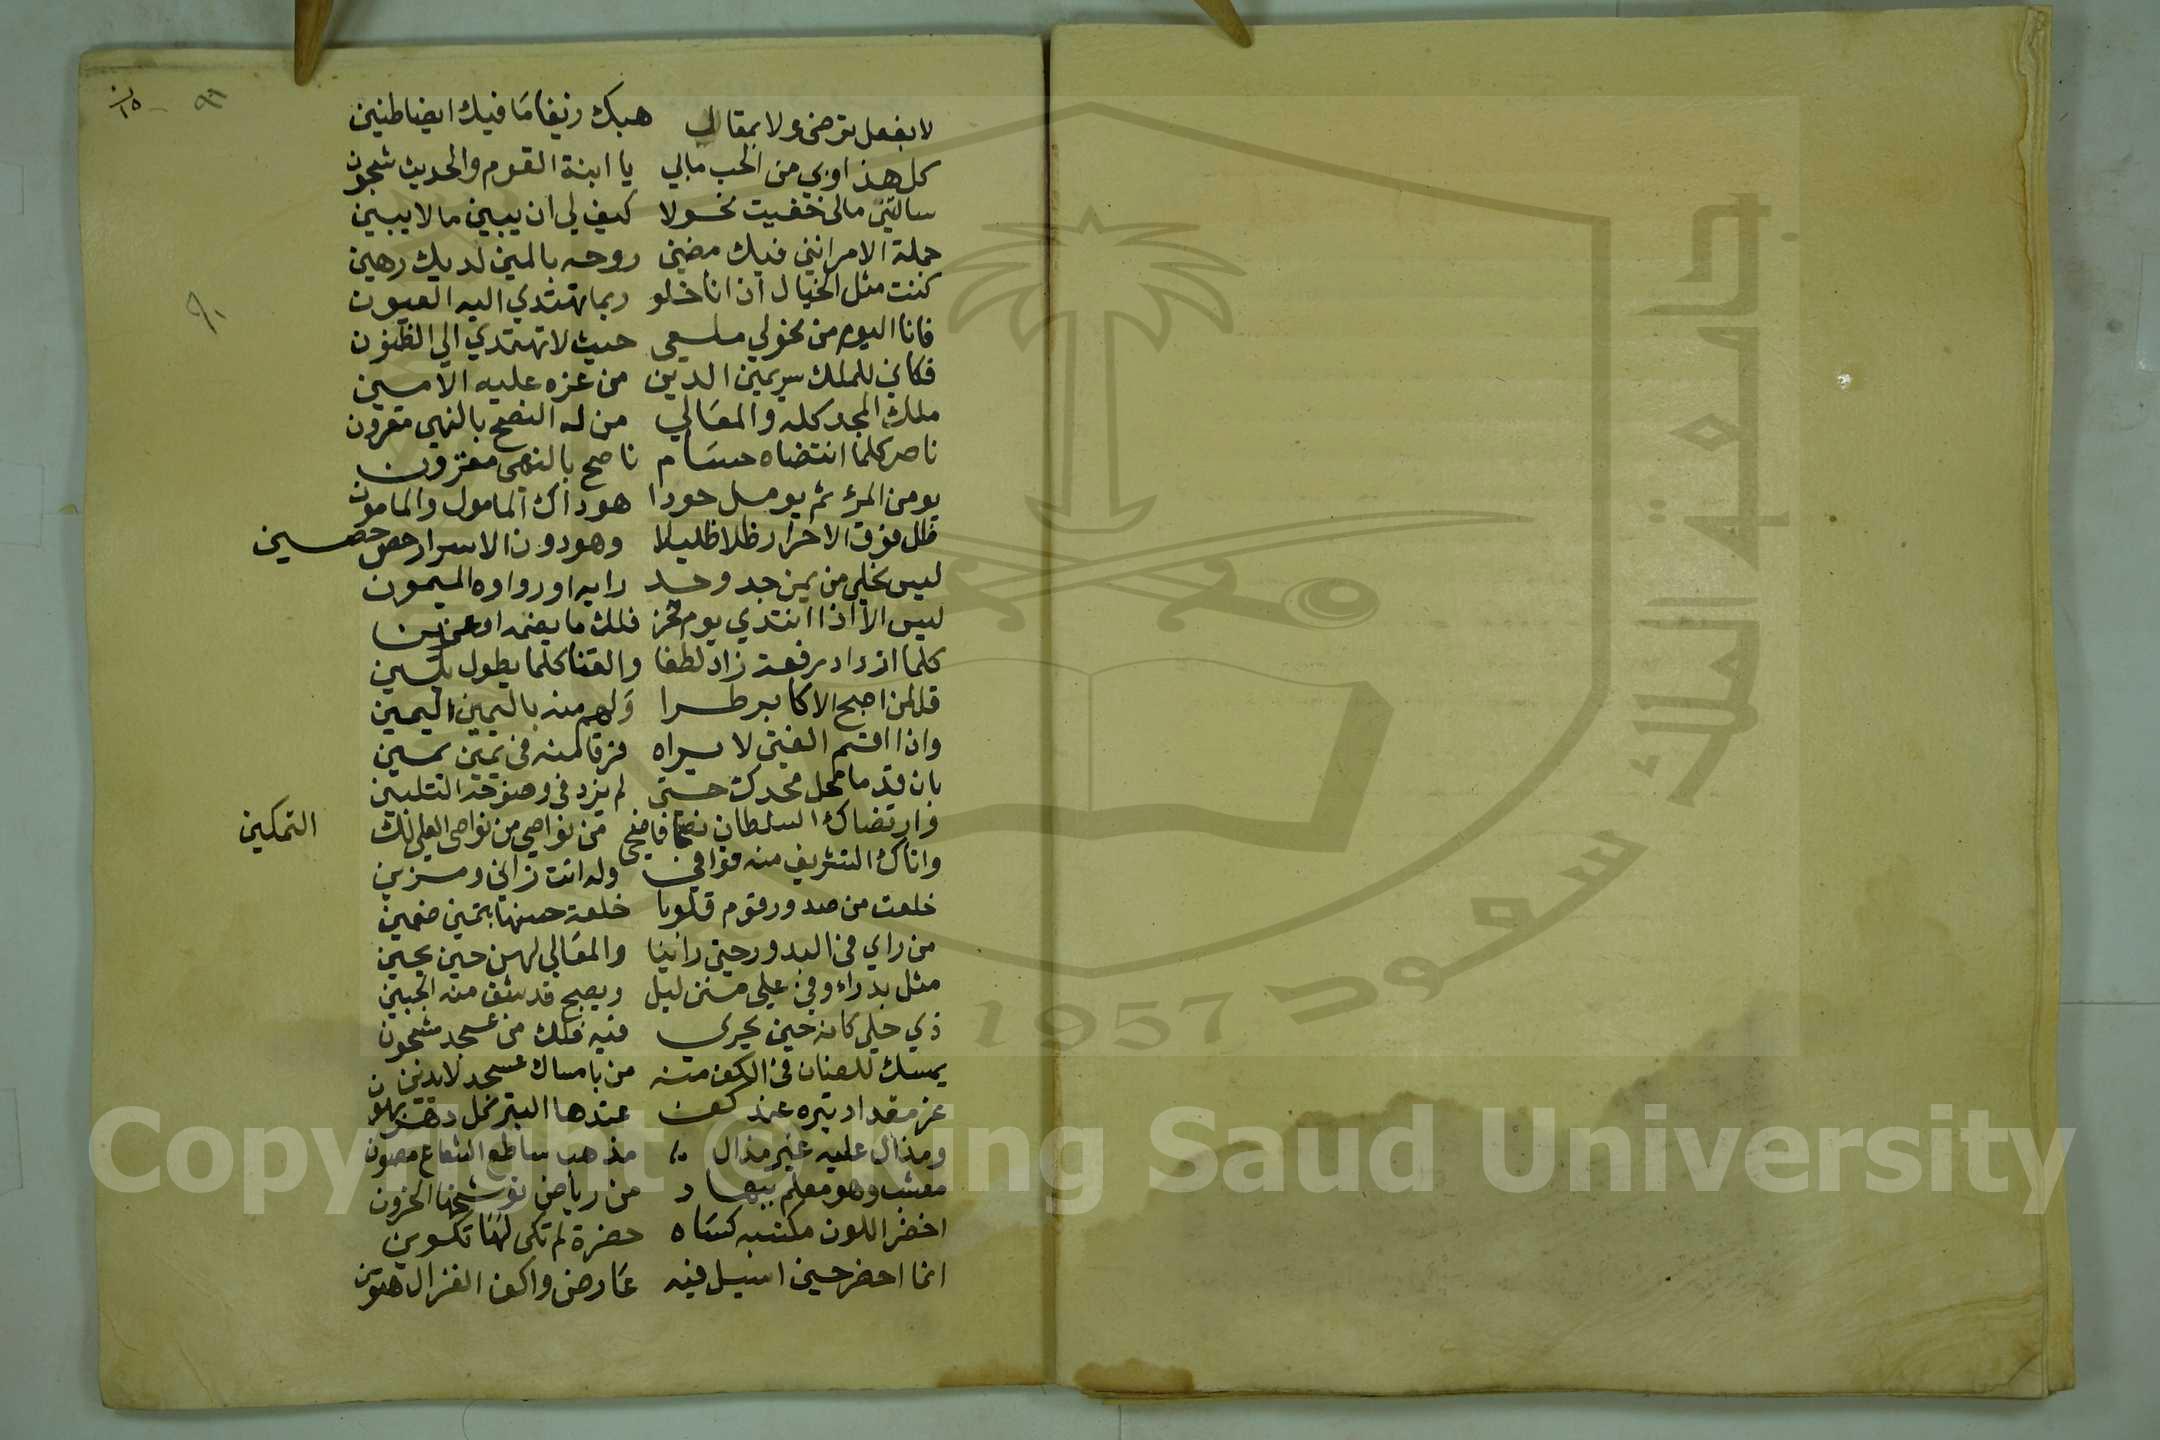 لا بفعل ترضى ولا بمقال هبك ريفا مَا فيك ايضا طنين
كل هذا وبي من الحب مالي يا ابنة القوم والحديث شجون
سالتني مالى خفيت نحولا كيف لي ان يبين مالا يبين
جملة الامر انني فيك مضنى روحه بالمين لديك رهين
كنت مثل الخيال اذ انا خلو ربما تهتدي اليه العيون
فانا اليوم من نحولي حيث لا تهتدي الي الظنون
فكاني للملك يمين الدين من عزه عليه الامين
ملك المجد كله والمعَالي من له النصح بالنهي مقرون
ناصر كلما انتضاه حسَام ناصح بالنهى مقرون
يومن المرء ثم يومل جودا هو ذاك المامول والمامون
ظل فوق الاحرار ظلا ظليلا وهو دون الاسرار حصن حصين
ليس يخلي من يمن جد وجد رايه او رواوه الميمون
ليس الا اذا انتدي يوم فخر فلك ما يضمه او عرين
كلما ازداد رفعة زاد لطفا والقنا كلما يطول يلين
قل لمن اصبح الاكابر طرا وَلهم منه باليمين اليمين
واذا اقسم الفتى لا يراه فرقا منه في يمين يمين
بان قدما محل مجدك حتى لم يزد في وضوحه التبيين
وارتضاك السلطان نصحا فاضحى من نواصي من نواصى العلى لك التمكين
واتاك التشريف منه فوافي وله انت زاني ومزين
خلعت من صدور قوم قلوبا خلعة حسنها بتمين ضمين
من راي في البدور حتى راينا والمعَالي لهن حين يحين
مثل بدر اوفى على متن ليل ويصبح قد شق منه الجبين
ذي حلي كانه حين يجري فيه فلك من عسجد مشحون
يمسك للعنان في الكف منه من بامساك عسجد لا يدين
عز مقدار تبره عند كف عندها التبر كل دهر يهون
ومذال عليه غير مذال مذهب ساطع الشعاع مصون
معشب وهو معلم ببهار من رياض توشحها الحزون
اخضر اللون مكتسبه كسَاه حضرة لم تكن لهَا تكوين
انما اخضر حين اسبل فيه عَارض واكف الغزال هتون
Copyright © King Saud University
جامعة الملك سعود
1957